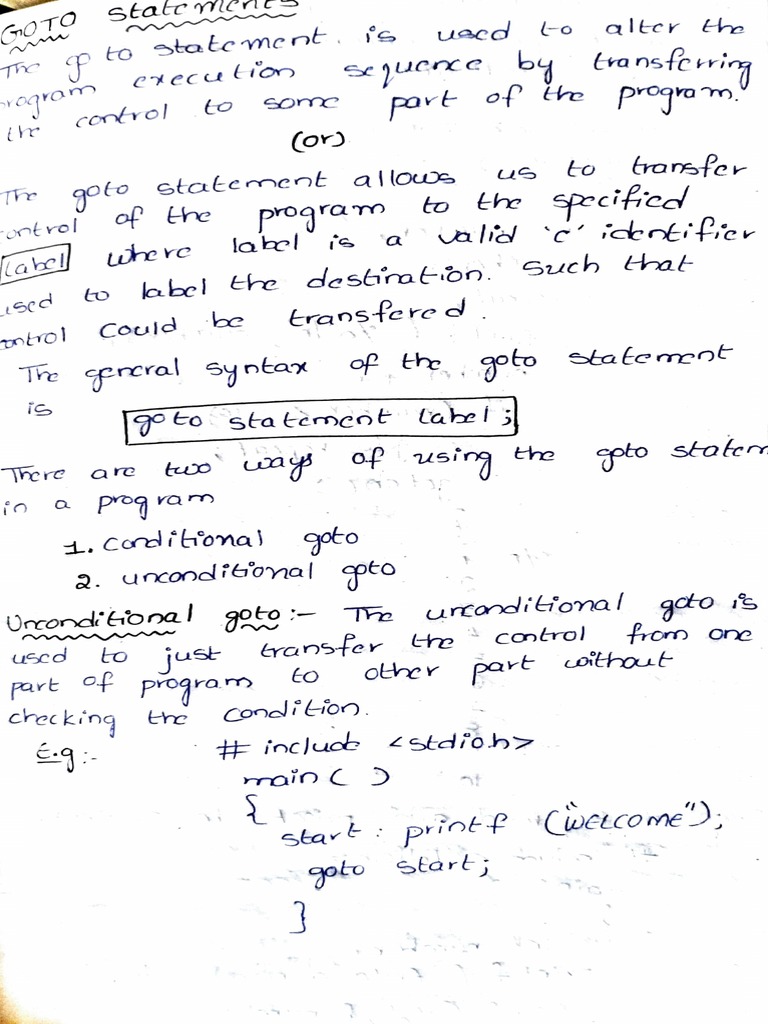 GOTO statements
The go to statement. is used to alter the
rogram execution sequence by transferring
the control to some part of the program.
(or)
The goto statement allows us to transfer
ontrol of the program to the specified
label where label is a valid 'c' identifier
used to label the destination. such that
ontrol could be transfered.
The general syntax of the goto statement
is goto statement label;
There are two ways of using the goto statem
in a program
1. conditional goto
2. unconditional goto
Unconditional goto:- The unconditional goto is
used to just transfer the control from one
part of program to other part without
checking the condition.
E.g:- # include <stdio.h>
main ( )
{
start : printf ("welcome");
goto start;
}